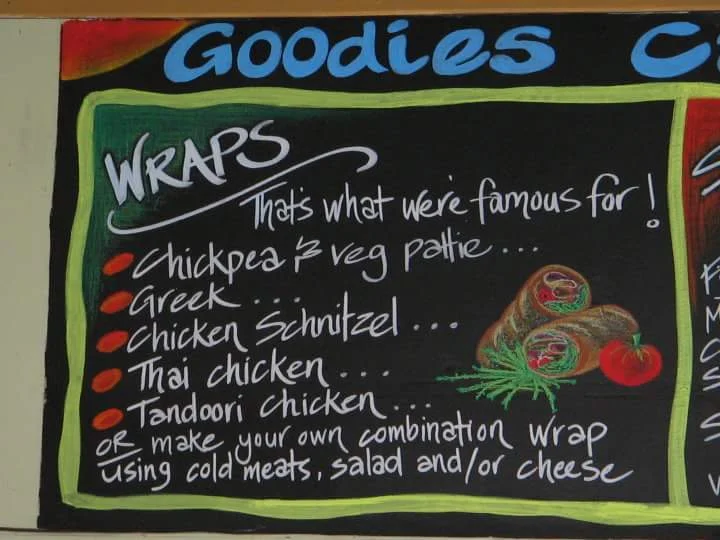 Goodies
WRAPS
That's what we're famous for!
Chickpea & veg pattie ...
Greek ...
Chicken Schnitzel ...
Thai chicken ...
Tandoori chicken ...
OR make your own combination wrap
using cold meats, salad and/or cheese